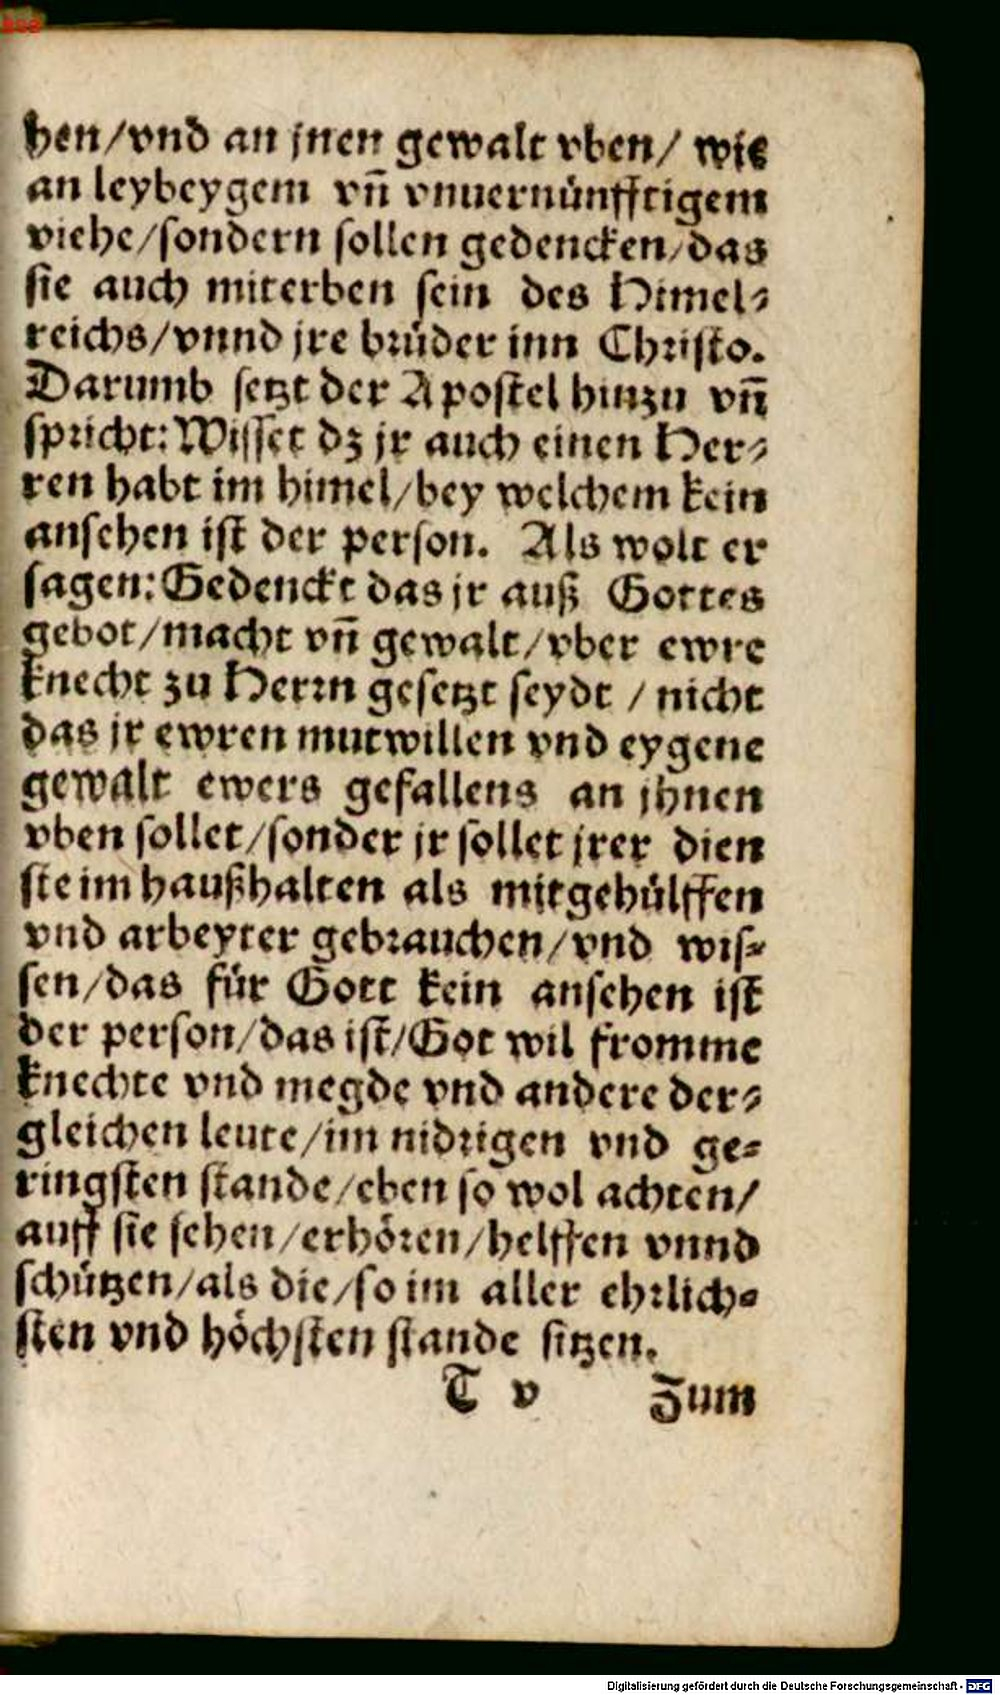 hen/vnd an jnen gewalt vben/ wie
an leybeygem vñ vnuernünfftigem
viehe/sondern sollen gedencken/das
sie auch miterben sein des Himel⸗
reichs/vnnd jre brüder inn Christo.
Darumb setzt der Apostel hinzu vñ
spricht: Wisset dz jr auch einen Her⸗
ren habt im himel/bey welchem kein
ansehen ist der person. Als wolt er
sagen: Gedenckt das jr auß Gottes
gebot/macht vñ gewalt/vber ewre
knecht zu Herrn gesetzt seydt / nicht
das jr ewren mutwillen vnd eygene
gewalt ewers gefallens an jhnen
vben sollet/sonder jr sollet jrer dien
ste im haußhalten als mitgehülffen
vnd arbeyter gebrauchen/vnd wis⸗
sen/das für Gott kein ansehen ist
der person/das ist/Got wil fromme
knechte vnd megde vnd andere der⸗
gleichen leute/im nidrigen vnd ge⸗
ringsten stande/eben so wol achten/
auff sie sehen/erhören/helffen vnnd
schützen/als die/so im aller ehrlich⸗
sten vnd höchsten stande sitzen.
T v Zum
Digitalisierung gefördert durch die Deutsche Forschungsgemeinschaft - DFG